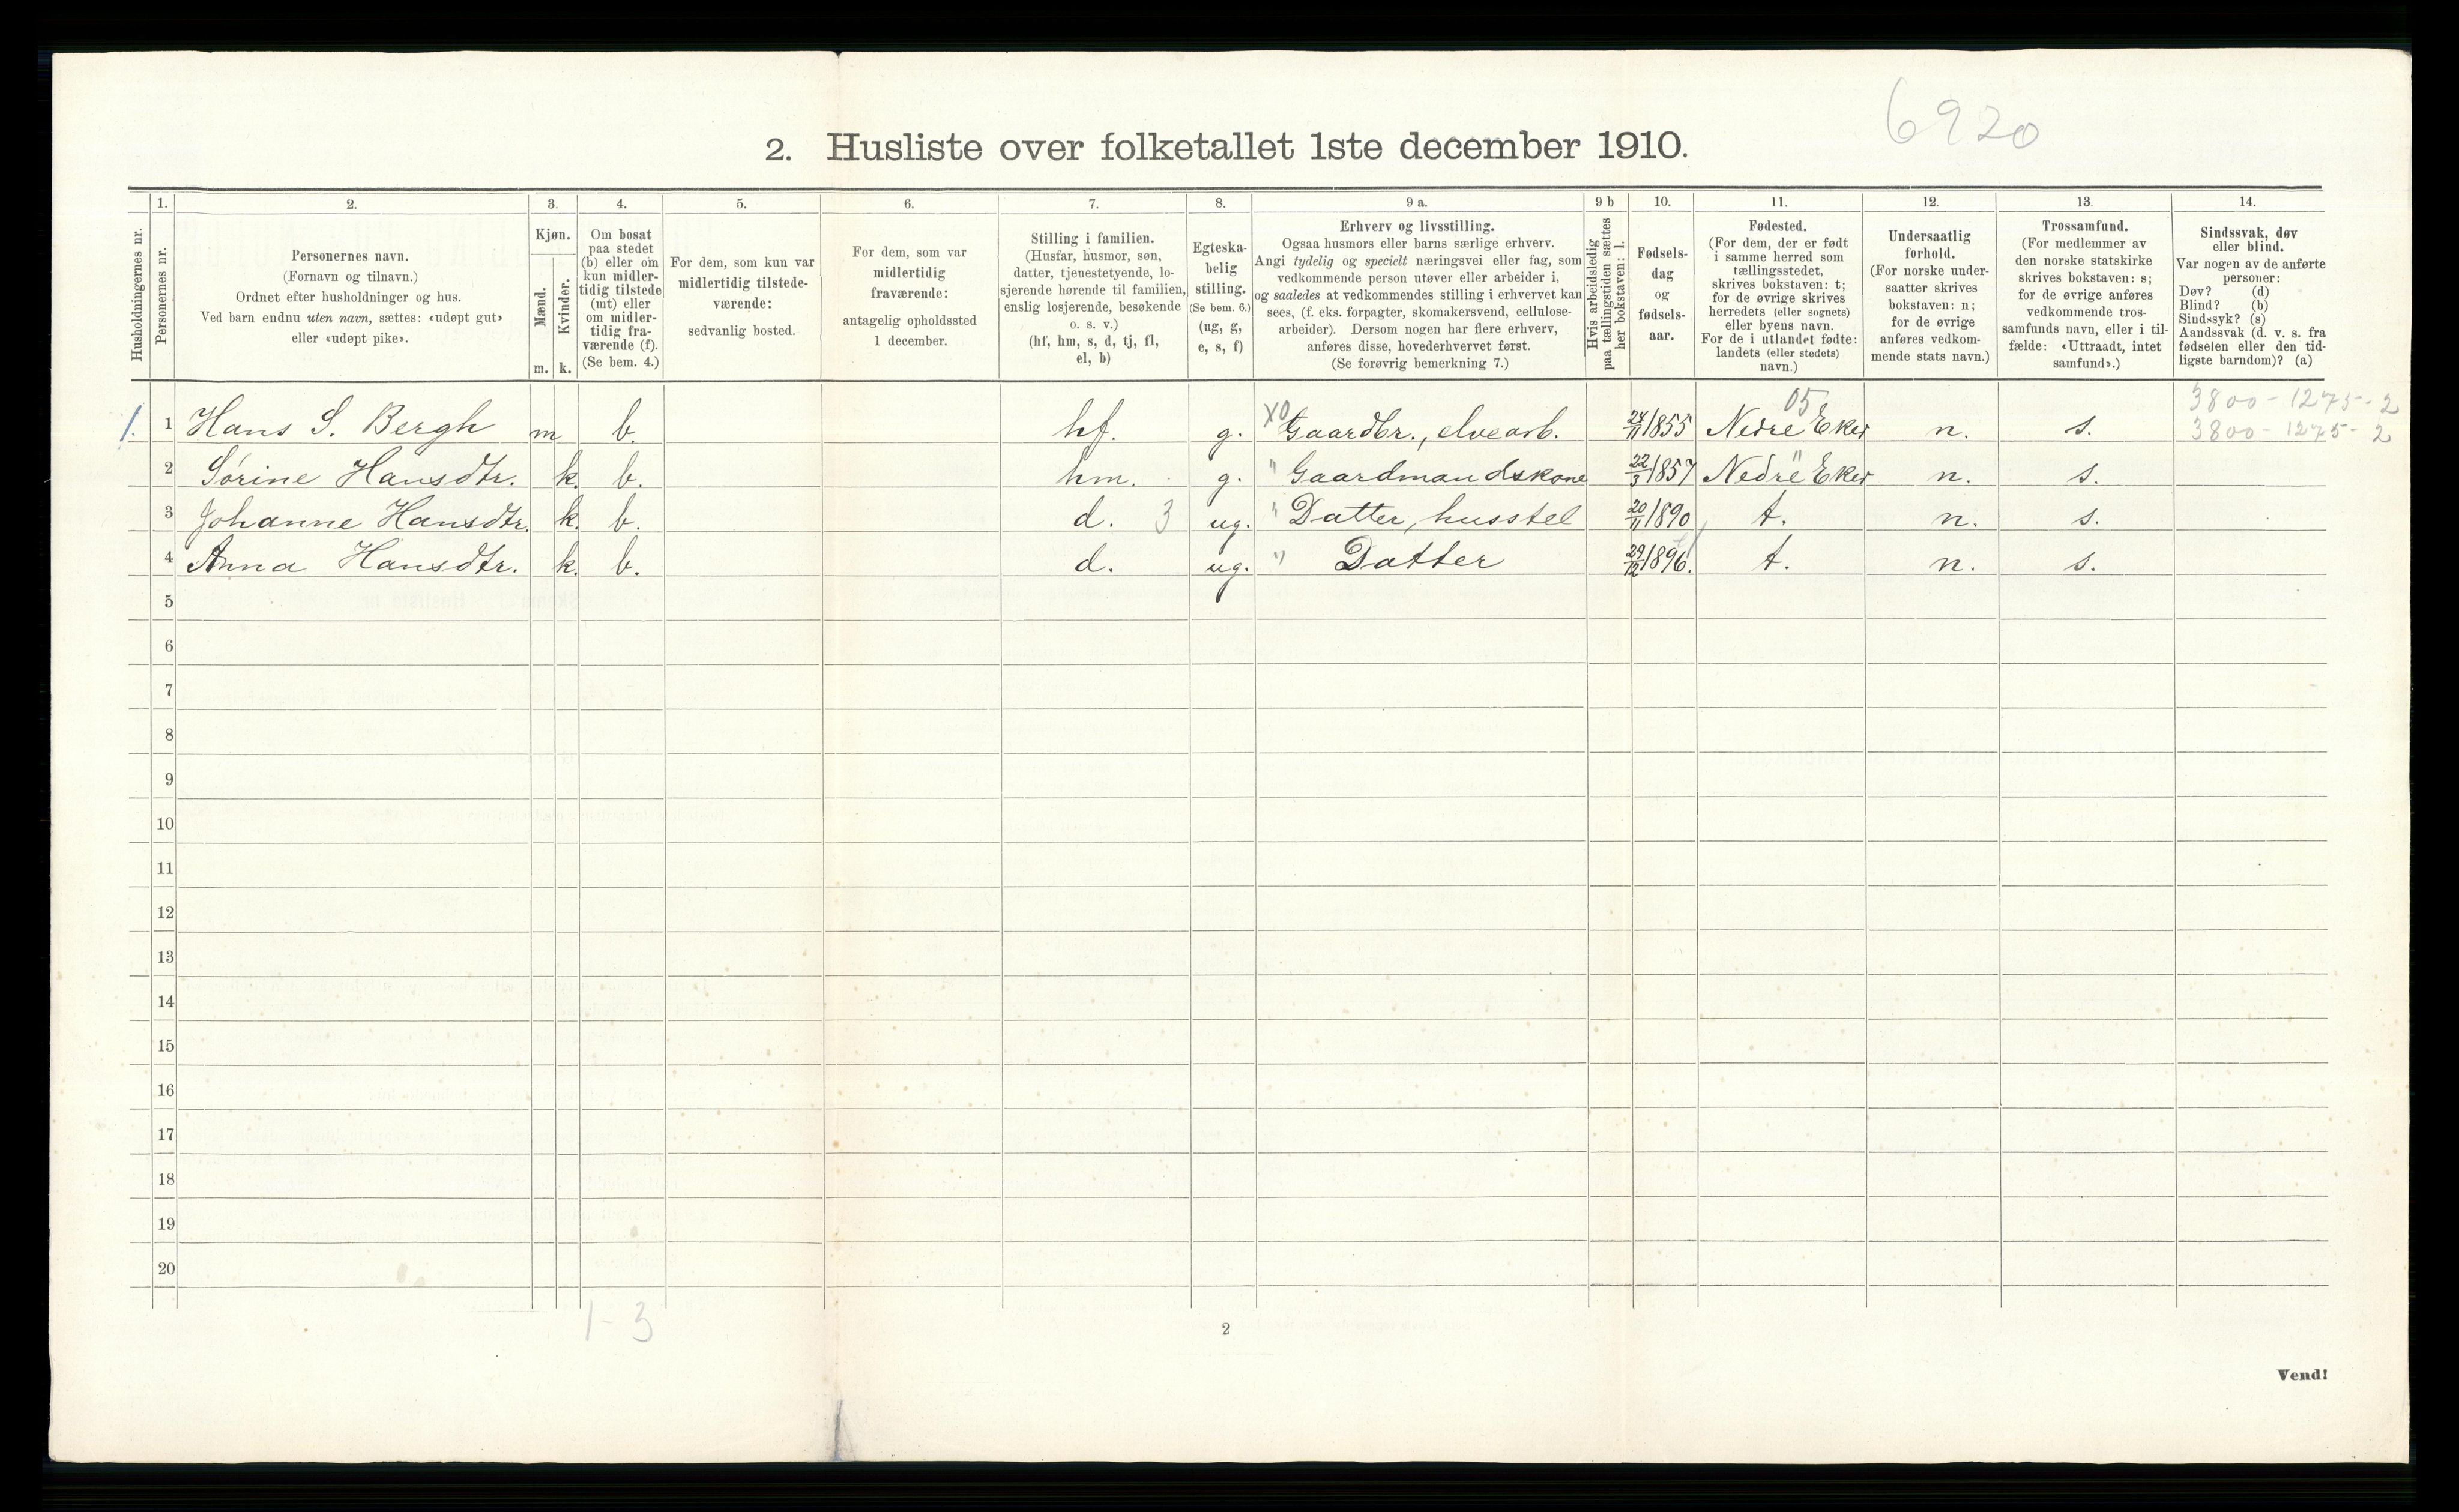 6920
2. Husliste over folketallet 1ste december 1910.
1. 2. 3. 4. 5. 6. 7. 8. 9 a. 9 b 10. 11. 12. 13. 14.
Husholdningernes nr.
Personernes nr.
Personernes navn.
(Fornavn og tilnavn.)
Ordnet efter husholdninger og hus.
Ved barn endnu uten navn, sættes: «udøpt gut»
eller «udøpt pike».
Kjøn.
Mænd.
Kvinder.
m. k.
Om bosat
paa stedet
(b) eller om
kun midler-
tidig tilstede
(mt) eller
om midler-
tidig fra-
værende (f).
(Se bem. 4.)
For dem, som kun var
midlertidig tilstede-
værende:
sedvanlig bosted.
For dem, som var
midlertidig
fraværende:
antagelig opholdssted
1 december.
Stilling i familien.
(Husfar, husmor, søn,
datter, tjenestetyende, lo-
sjerende hørende til familien,
enslig losjerende, besøkende
o. s. v.)
(hf, hm, s, d, tj, fl,
el, b)
Egteska-
belig
stilling.
(Se bem. 6.)
(ug, g,
e, s, f)
Erhverv og livsstilling.
Ogsaa husmors eller barns særlige erhverv.
Angi tydelig og specielt næringsvei eller fag, som
vedkommende person utøver eller arbeider i,
og saaledes at vedkommendes stilling i erhvervet kan
sees, (f. eks. forpagter, skomakersvend, cellulose-
arbeider). Dersom nogen har flere erhverv,
anføres disse, hovederhvervet først.
(Se forøvrig bemerkning 7.)
Hvis arbeidsledig
paa tællingstiden sættes
her bokstaven: l.
Fødsels-
dag
og
fødsels-
aar.
Fødested.
(For dem, der er født
i samme herred som
tællingsstedet,
skrives bokstaven: t;
for de øvrige skrives
herredets (eller sognets)
eller byens navn.
For de i utlandet fødte:
landets (eller stedets)
navn.)
Undersaatlig
forhold.
(For norske under-
saatter skrives
bokstaven: n;
for de øvrige
anføres vedkom-
mende stats navn.)
Trossamfund.
(For medlemmer av
den norske statskirke
skrives bokstaven: s;
for de øvrige anføres
vedkommende tros-
samfunds navn, eller i til-
fælde: «Uttraadt, intet
samfund».)
Sindssvak, døv
eller blind.
Var nogen av de anførte
personer:
Døv? (d)
Blind? (b)
Sindssyk? (s)
Aandssvak (d. v. s. fra
fødselen eller den tid-
ligste barndom)? (a)
05 3800-1275-2
1. 1 Hans S. Bergh m b. hf. g. X0 Gaardbr., elvearb. 24/11 1855 Nedre Eker n. s. 3800-1275-2
2 Sørine Hansdtr. k. b. hm. g. " Gaardmandskone 22/3 1857 Nedre Eker " n. s.
3 Johanne Hansdtr. k. b. d. 3 ug. " Datter, husstel 20/11 1890 t. n. s.
4 Anna Hansdtr. k. b. d. ug. " Datter 29/12 1896. t. n. s.
5
6
7
8
9
10
11
12
13
14
15
16
17
18
19
20
1-3
2
Vend!